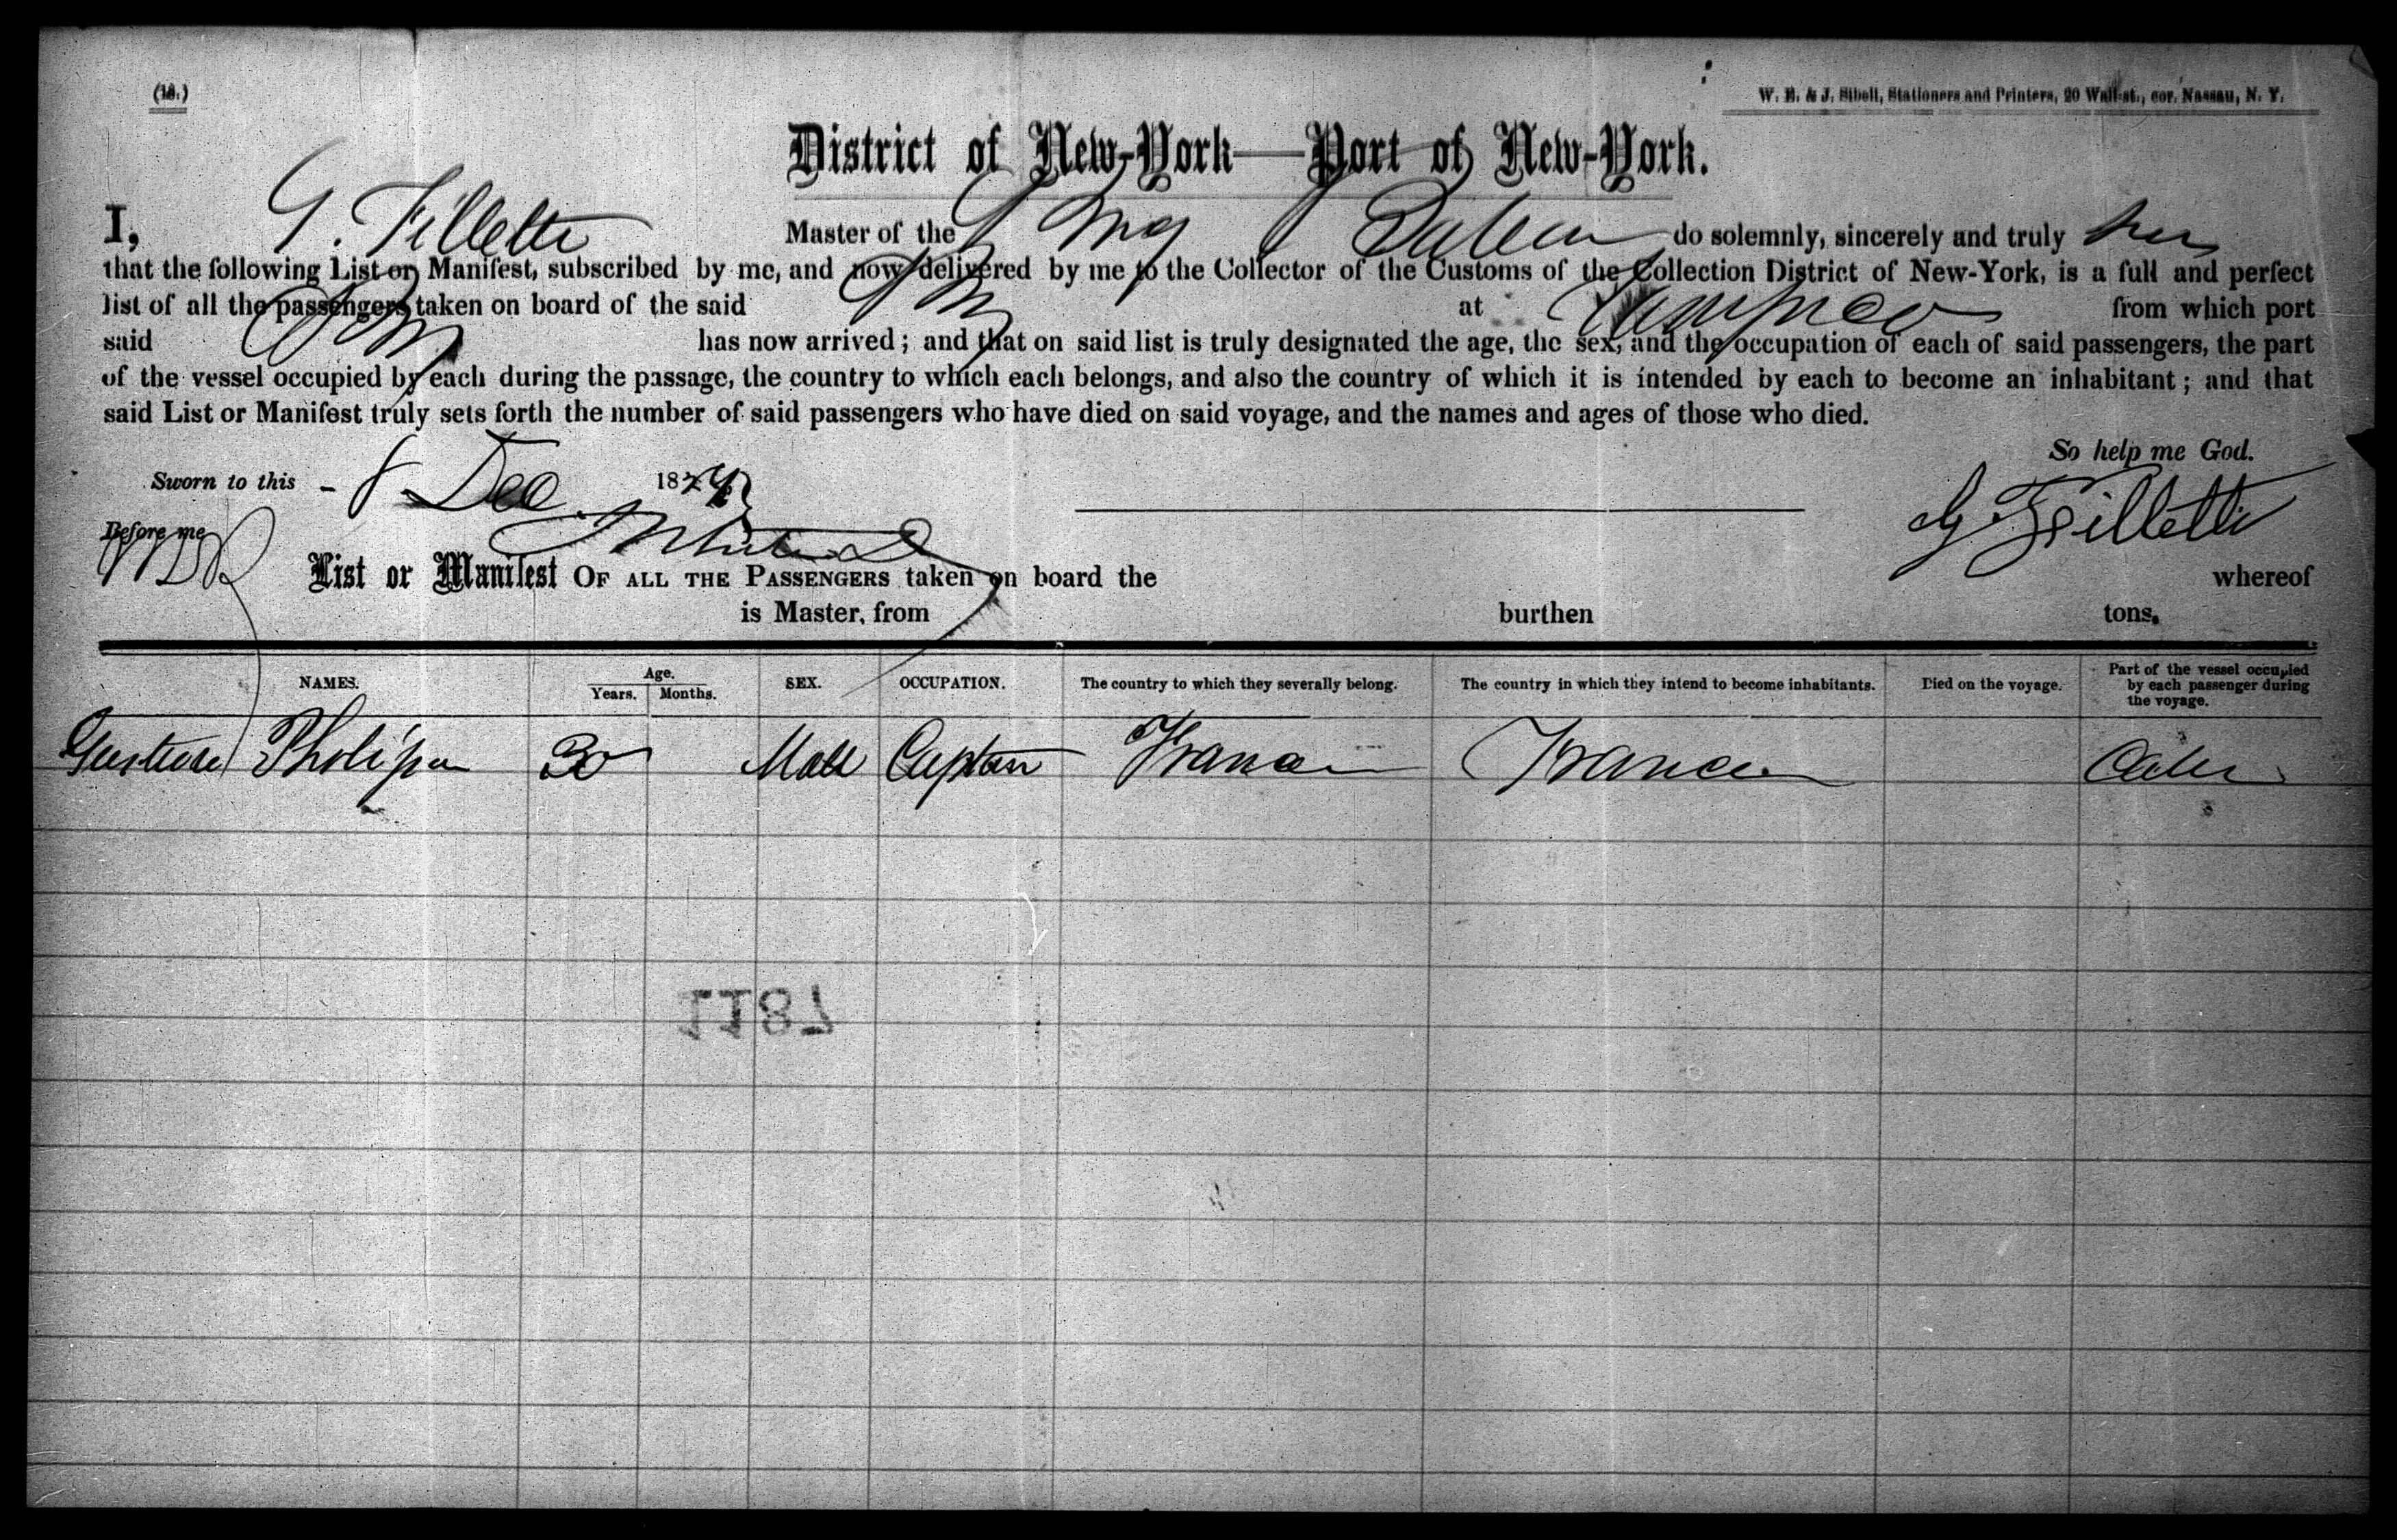 (18.)
W. E. & J. Sibell, Stationers and Printers, 20 Wall-st., cor. Nassau, N. Y.
District of New-York—Port of New-York.
I, G. Fillette Master of the do solemnly, sincerely and truly
that the following List or Manifest, subscribed by me, and now delivered by me to the Collector of the Customs of the Collection District of New-York, is a full and perfect
list of all the passengers taken on board of the said at Tampico from which port
said has now arrived; and that on said list is truly designated the age, the sex, and the occupation of each of said passengers, the part
of the vessel occupied by each during the passage, the country to which each belongs, and also the country of which it is intended by each to become an inhabitant; and that
said List or Manifest truly sets forth the number of said passengers who have died on said voyage, and the names and ages of those who died.
So help me God.
Sworn to this 8 Dec 187
G Fillette
Before me
List or Manifest OF ALL THE PASSENGERS taken on board the whereof
is Master, from burthen tons.
NAMES. Age. Years. Months. SEX. OCCUPATION. The country to which they severally belong. The country in which they intend to become inhabitants. Died on the voyage. Part of the vessel occupied by each passenger during the voyage.
30 Male Captain France France
1187